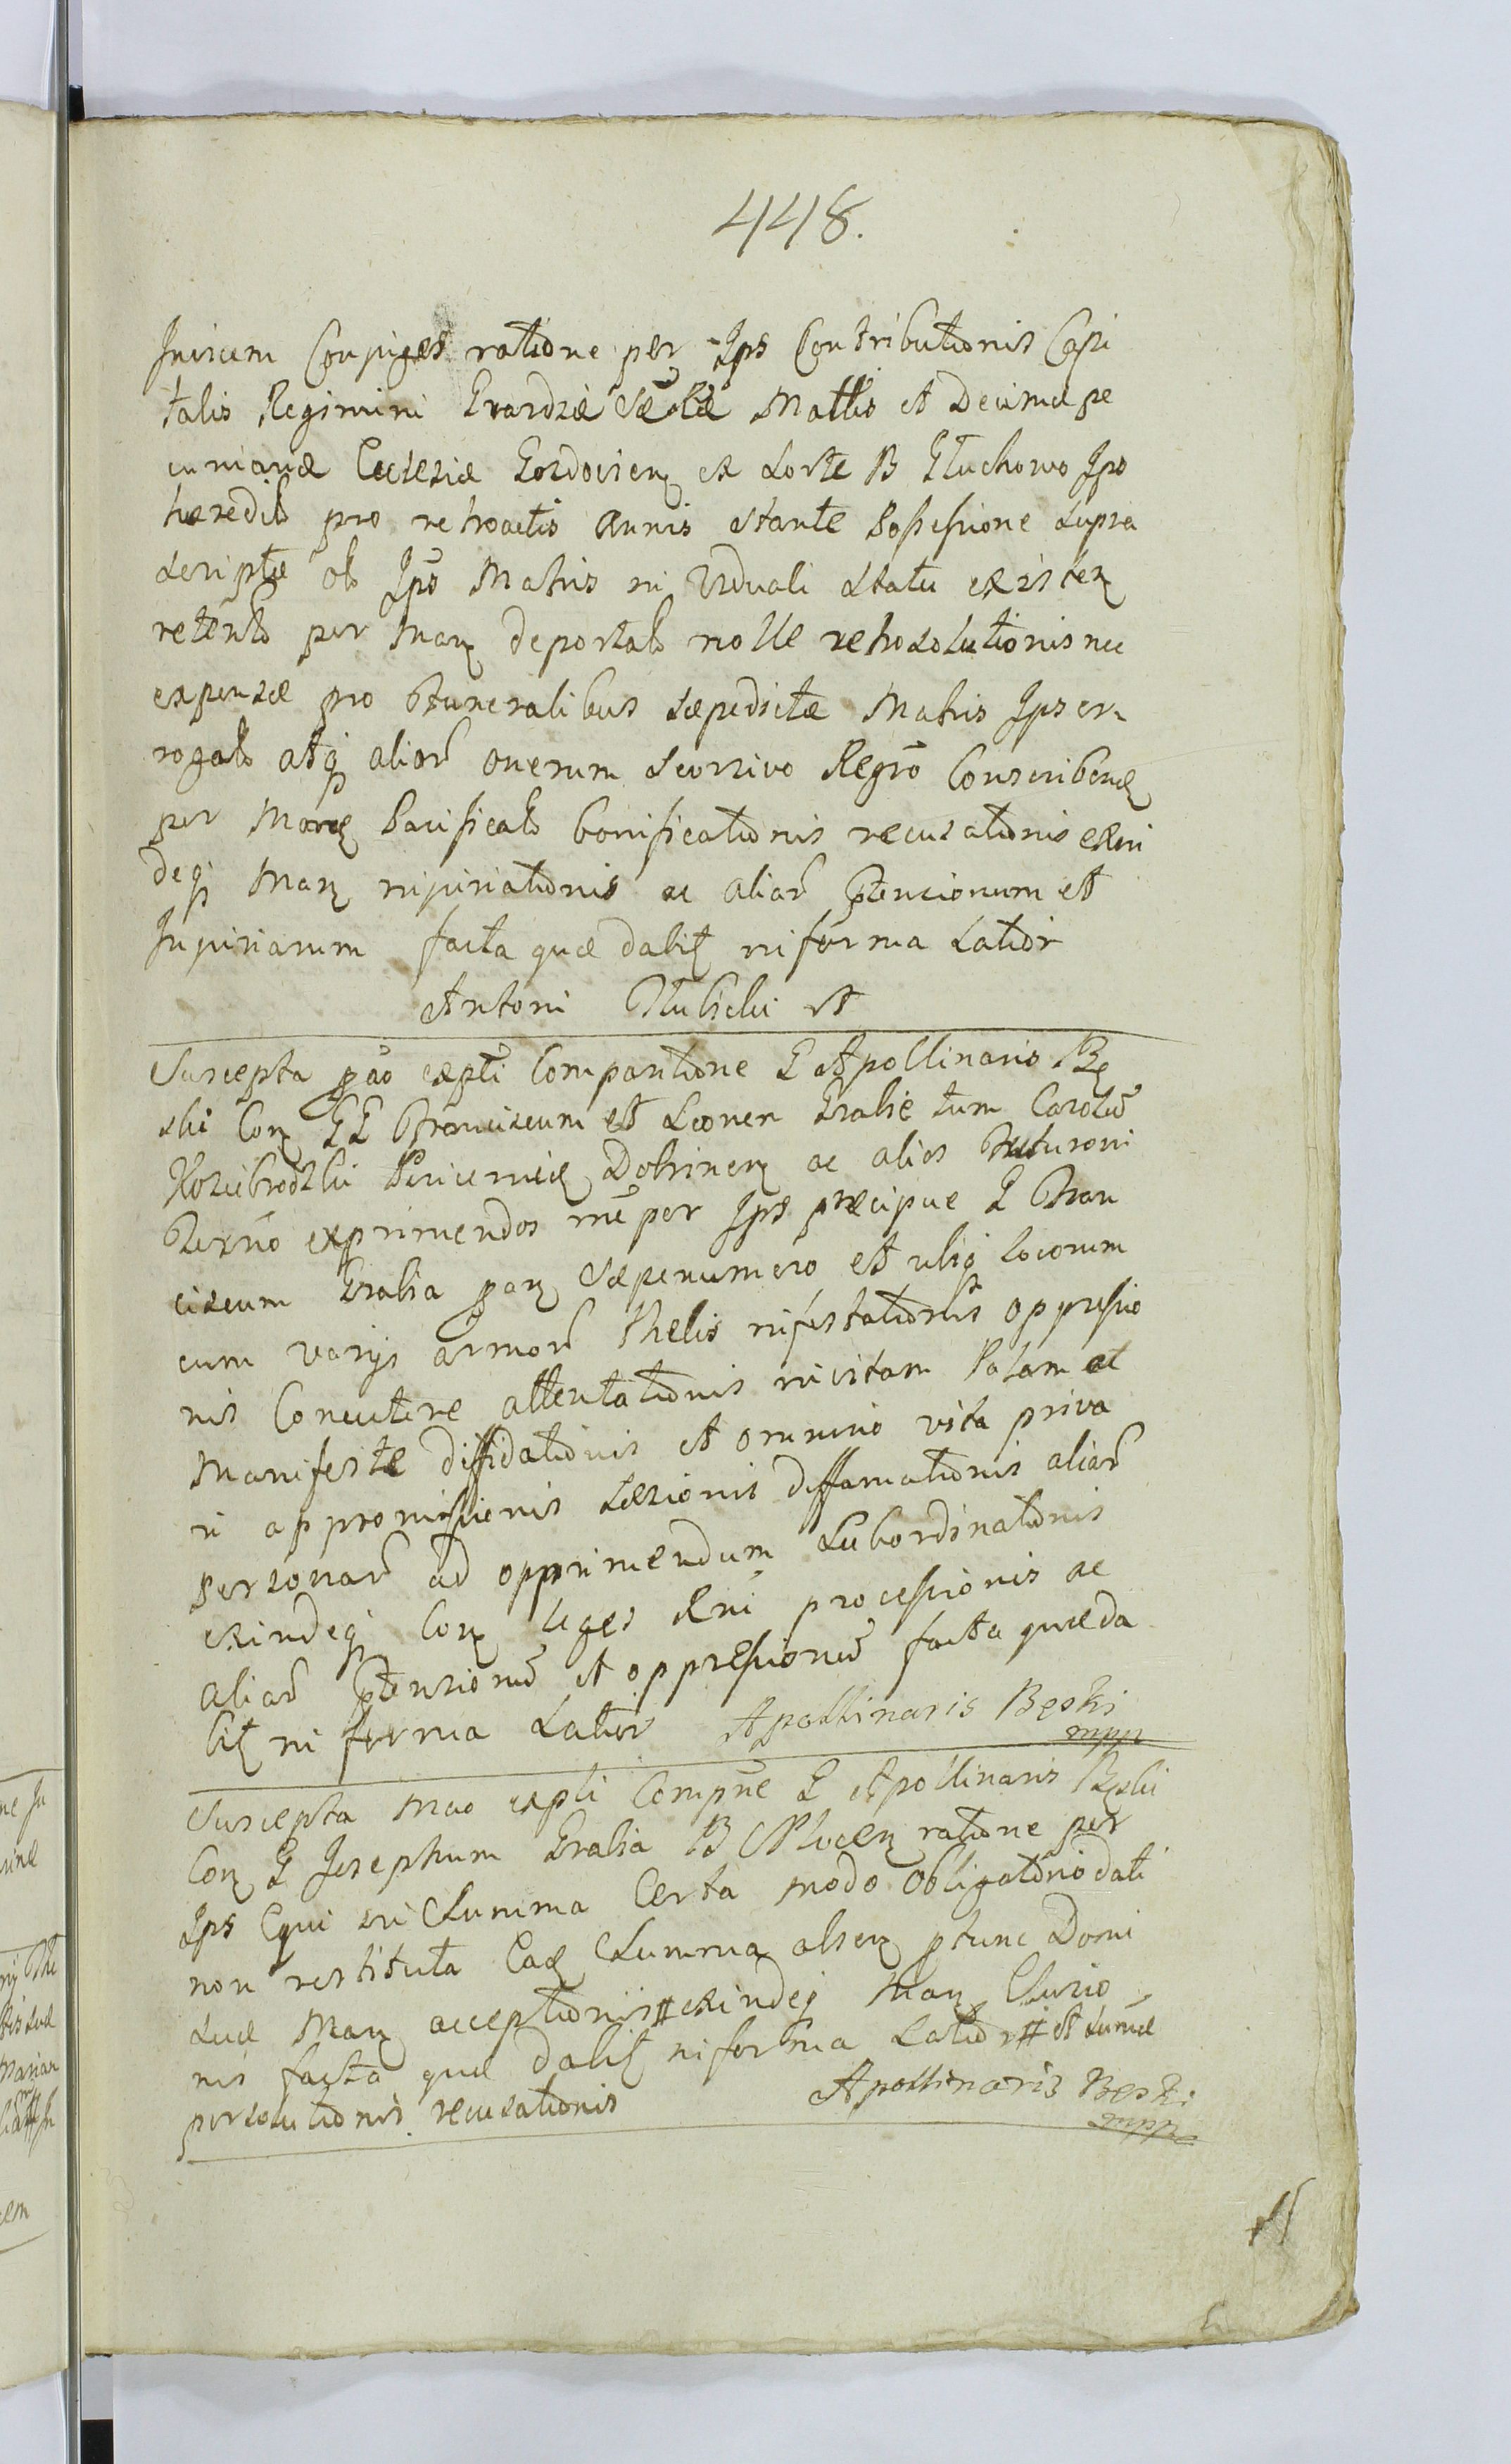 448.
Invicem Conjuges ratione per Ips Contributionis Capi
talis Regimini Gvardziæ Mattis et Decimæ pe
cuniariæ Ecclesiæ ex Sorte B Gluchowo Ips
hæredit pro retroactis annis stante Possessione supra
scriptæ ob Ips Matris in Viduali Statu existen
retent per Man deportat nolle retrosolutionis nec
expensæ pro Funeralibus sæpedictæ Matris Ips er
rogat atq alior onerum Regro Conscribend
per Pacificat bonificationis recusationis exin
deq Man injuriationis ac aliar Ptensionum et
Injuriarum facta quæ dabit in forma Latior
Antoni
Suscepta pao cæpti Comparitione G Apollinaris Bę
ski Con GG Franciscum et Leonem Grabie tum Carolu
Kozibrodzki Dobrinen ac alios Futuro in
Termno exprimendos per Ips præcipue G Fran
ciscum Grabia pan sæpenumero et ubiq locorum
cum varys armor thelis infestationis oppressio
nis Concutere attentationis in vitam Palam et
Manifeste diffidationis et omnino vita priva
ri appromissionis Læsionis diffamationis aliar
personar ad opprimendum Subordinationis
exindeq Con leges Rni processionis ac
aliar Ptensionu et oppressionu facta quæ da
bit in forma Latior Apollinaris Bęski
mpp
Suscepta Mao cæpti Compne G Apollinaris Bęski
Con G Josephum Grabia B Plocen ratione per
Ips Equi sui Summa Certa modo obligatorio dati
non restituta Ead Summa absen ptunc Domi
suæ Man acceptionis # exindeq Man
nis facta quæ dabit in forma Latior # et Sumæ
persolutionis recusationis Apollinaris Bęski
mpp